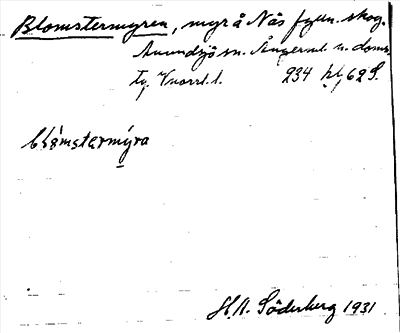 Blomstermyren, myr å Näs fjälln. skog.
Anundsjö sn. Ångerml. n. doms.
tg. Vnorrl. l. 234 hl, 62 S.
blòmstarmýra
H. A. Söderberg 1931